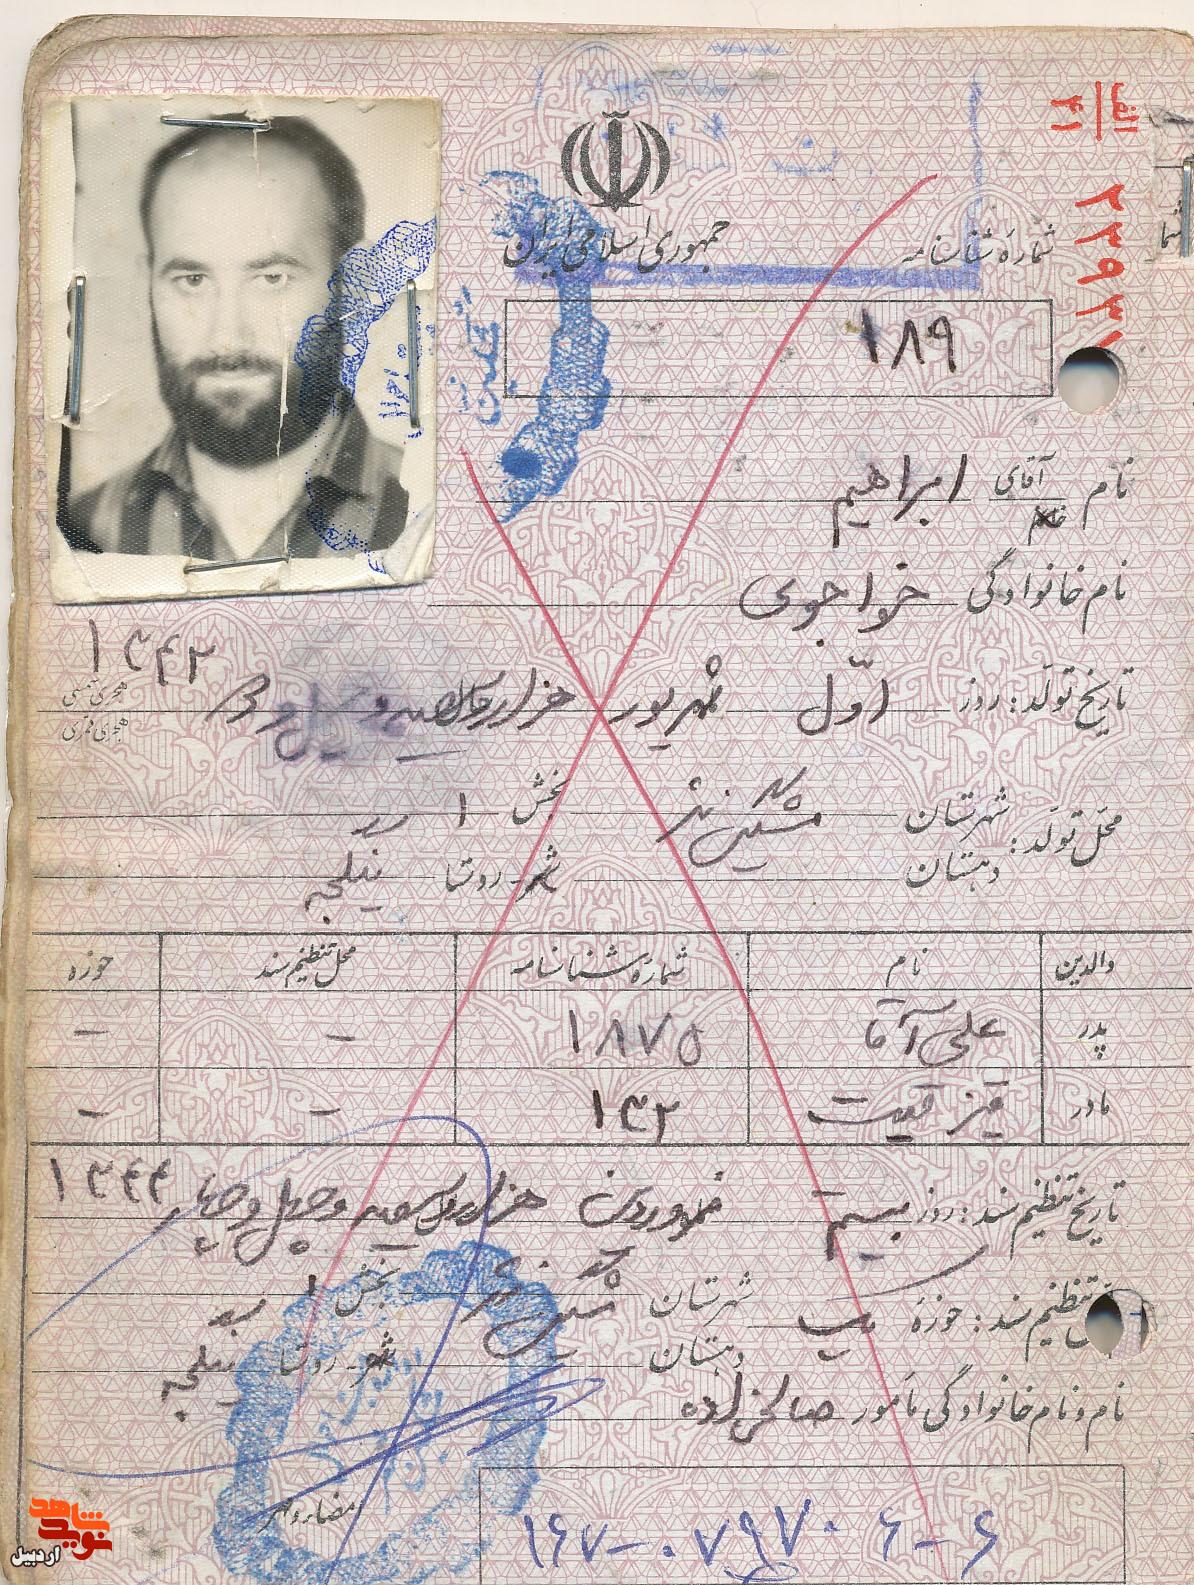 الف
۴۱
۲۳۹۳۷
جمهوری اسلامی ایران
شمارهٔ شناسنامه
۱۸۹
نام آقای خانم ابراهیم
نام خانوادگی خواجوی
تاریخ تولّد: روز اوّل شهریور هزار و سیصد و چهل و دو ۱۳۴۲
هجری شمسی
هجری قمری
محل تولّد: شهرستان مشکین شهر بخش ۱
دهستان شهر - روستا بیلجه
والدین نام شمارهٔ شناسنامه محل تنظیم سند حوزه
پدر علی آقا ۱۸۷۵ - -
مادر قیز قیت ۱۳۲ - -
تاریخ تنظیم سند: روز بیستم فروردین هزار و سیصد و چهل و چهار ۱۳۴۴
تنظیم سند: حوزهٔ یک شهرستان مشکین شهر بخش ۱
دهستان شهر - روستا بیلجه
نام و نام خانوادگی مأمور صالح زاده
امضا و مهر
۶-۶
شاهد
نوید
اردبیل